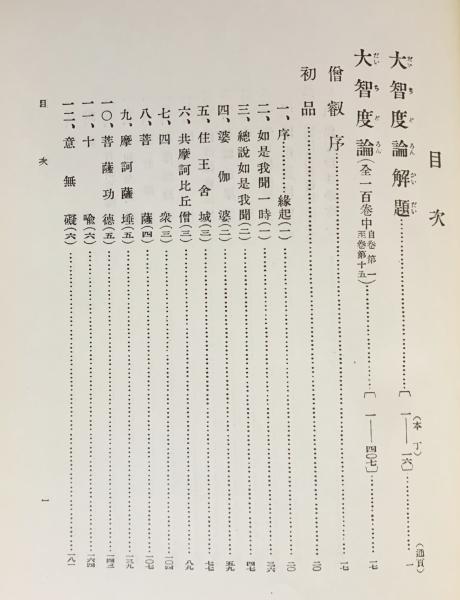 目次
(本丁) (通頁)
大智度論解題……〔一——一六〕……一
だいちどろんかいだい
大智度論(全一百卷中自卷第一至卷第十五)……〔一——四〇七〕……一七
だいちどろん
僧叡序……一七
初品……二〇
一、序……緣起(一)……二〇
二、如是我聞一時(一)……三六
三、總說如是我聞(二)……四七
四、婆伽婆(二)……五九
五、住王舍城(三)……七七
六、共摩訶比丘僧(三)……八九
七、四衆(三)……一〇四
八、菩薩(四)……一〇七
九、摩訶薩埵(五)……一三九
一〇、菩薩功德(五)……一四三
一一、十喩(六)……一六四
一二、意無礙(六)……一八一
目次
一